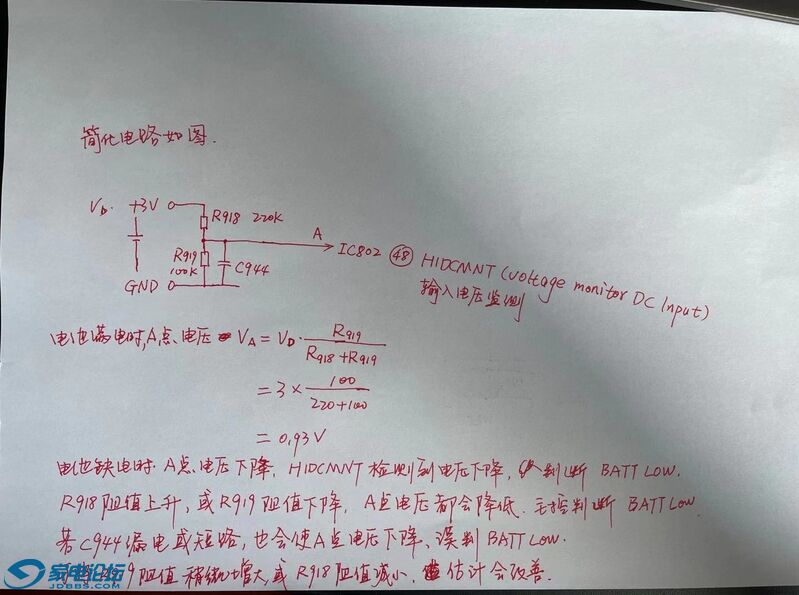 简化电路如图.
VD. +3V
R918 220K
A
IC802 48 HIDCMNT (voltage monitor DC Input)
R919
100K
C944
输入电压监测
GND
电池满电时,A点电压 VA = VD · R919 / R918+R919
= 3 × 100 / 220+100
= 0.93V
电池缺电时 A点电压下降, HIDCMNT 检测到电压下降, 判断 BATT LOW.
R918 阻值上升, 或 R919 阻值下降, A点电压都会降低. 主控判断 BATT LOW
若 C944 漏电或短路, 也会使A点电压下降、误判 BATT LOW.
阻值 稍微增大, 或 R918 阻值减小. 估计会改善.
家电论坛
JDBBS.COM